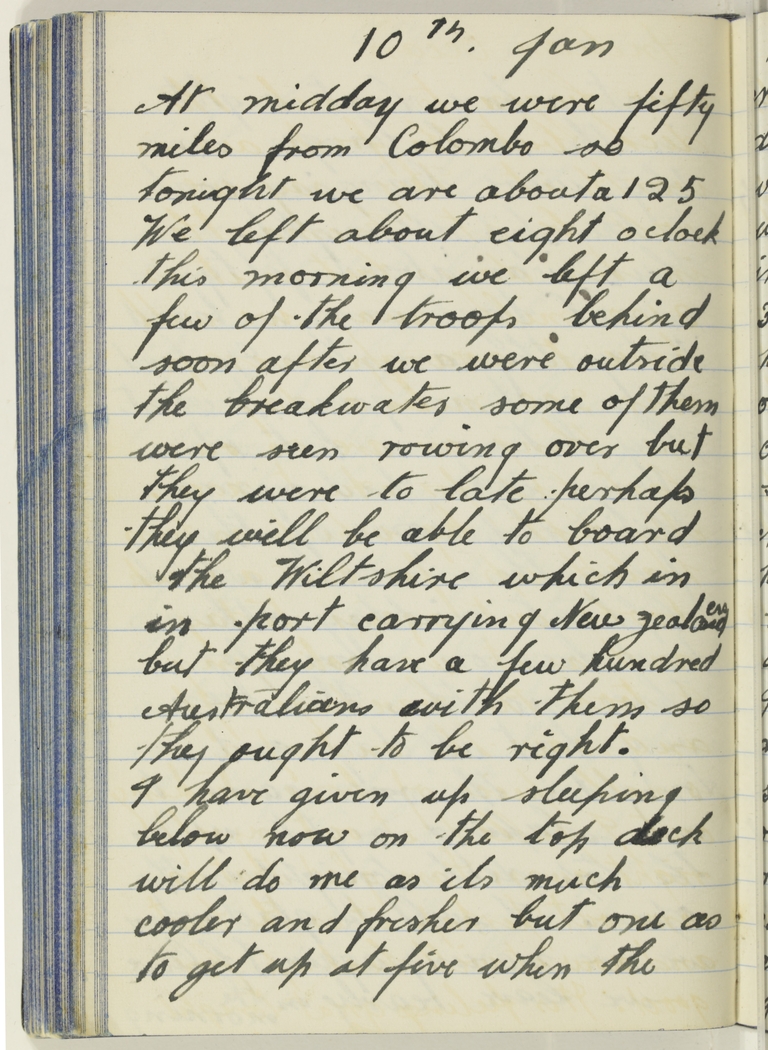 10th. Jan
At midday we were fifty
miles from Colombo so
tonight we are about a 125
We left about eight oclock
this morning we left a
few of the troops behind
soon after we were outside
the breakwater some of them
were seen rowing over but
they were to late perhaps
they will be able to board
the Wiltshire which in
in port carrying New
but they have a few hundred
Australians with them so
they ought to be right.
I have given up sleeping
below now on the top deck
will do me as its much
cooler and fresher but one as
to get up at five when the